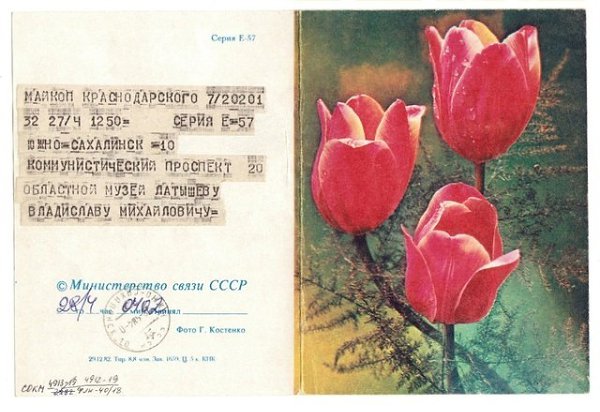 Серия Е-57
МАЙКОП КРАСНОДАРСКОГО 7/20201
32 27/4 1250= СЕРИЯ Е=57
ЮЖНО=САХАЛИНСК =10
КОММУНИСТИЧЕСКИЙ ПРОСПЕКТ 20
ОБЛАСТНОЙ МУЗЕЙ ЛАТЫШЕВУ
ВЛАДИСЛАВУ МИХАЙЛОВИЧУ=
© Министерство связи СССР
28/4
Фото Г. Костенко
29.12.82. Тир. 8,8 млн. Зак. 1659. Ц. 5 к. КПК
СОКМ 4913-19 4912-19